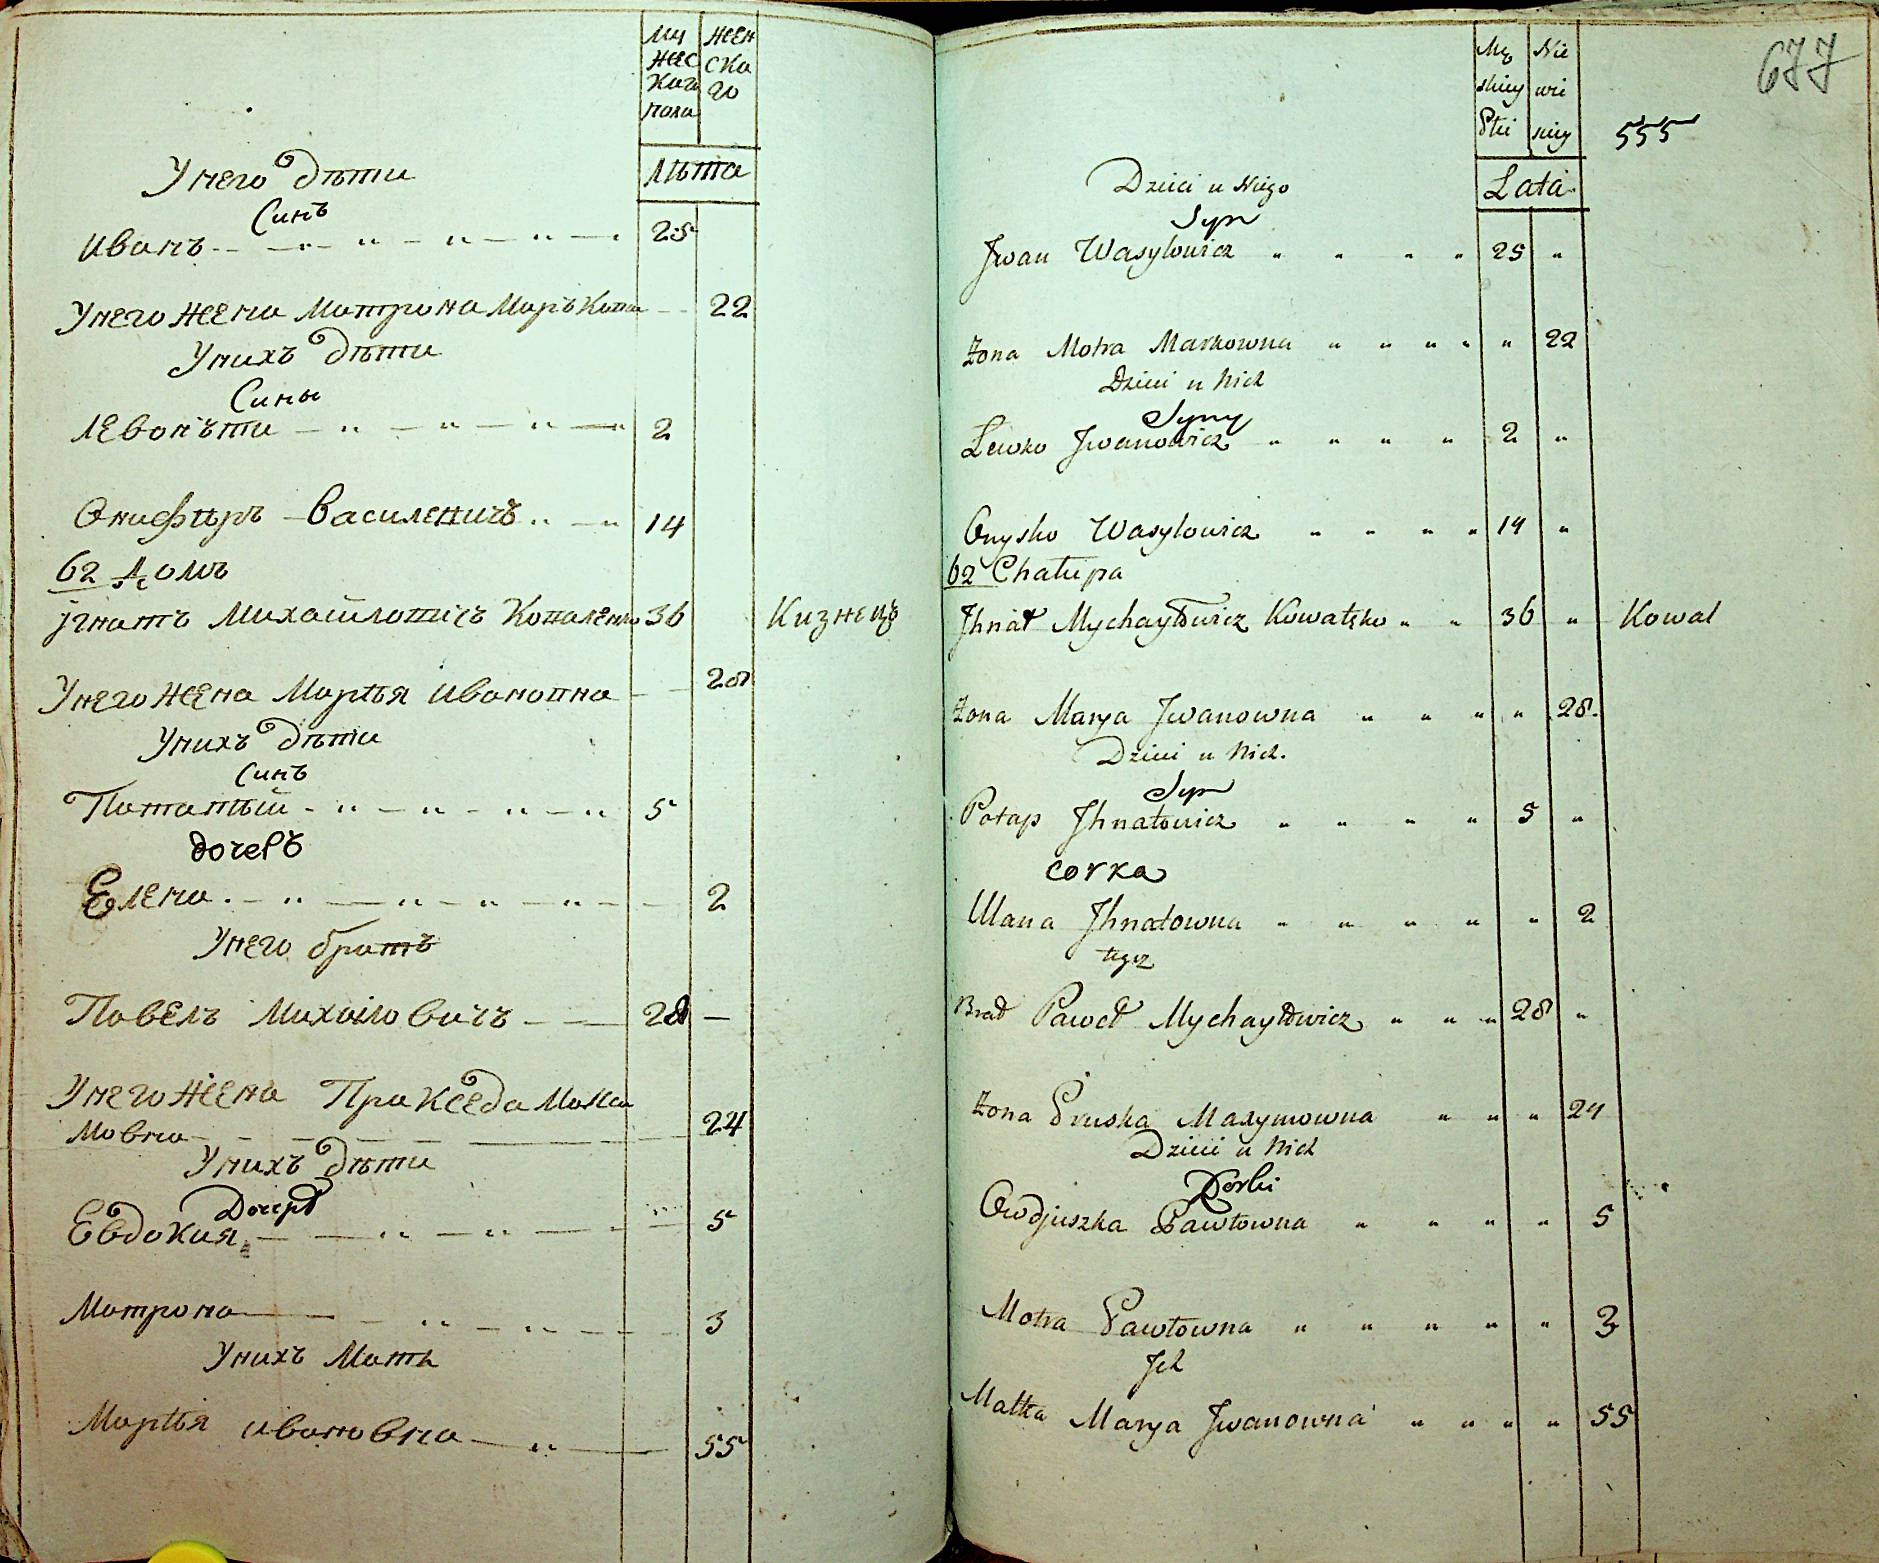 Му жен
жес ска
каго го
пола
лѣта
У него дѣти
Синъ
Иванъ 25
У него жена Матрона Марькова 22
У нихъ дѣти
Сины
Левонъти 2
Онифѣръ Василевичъ 14
62 Домъ
Iгнатъ Михайловичъ Коваленко 36 Кизнецъ
У него жена Марѣя Ивановна 28
У нихъ дѣти
Синъ
Потапый 5
дочеръ
Елена 2
У него братъ
Павелъ Михаiловичъ 28
У него жена Праκседа Макси
мовна 24
У нихъ дѣти
Дочерѣ
Евдокия 5
Матрона 3
У нихъ Мать
Марѣя Ивановна 55
677
Mę Nie
skiey wie
Płci sciey
555
Lata
Dzieci u Niego
Syn
Jwan Wasylowicz " " " " 25 "
Żona Motra Markowna " " " " " 22
Dzieci u Nich
Syny
Lewko Jwanowicz " " " " 2 "
Onysko Wasylowicz " " " " 14 "
62 Chałupa
Jhnat Mychayłowicz Kowalsko " " 36 " Kowal
Żona Marya Jwanowna " " " " 28.
Dzieci u Nich.
Syn
Potap Jhnatowicz " " " " 5 "
corka
Ulana Jhnatowna " " " " " 2
tegoz
Brat Paweł Mychayłowicz " " " 28 "
Żona Pruska Maxymowna " " " 24
Dzieci u Nich
Córki
Owdjuszka Pawłowna " " " " 5
Motra Pawłowna " " " " " 3
Jch
Matka Marya Jwanowna " " " " 55